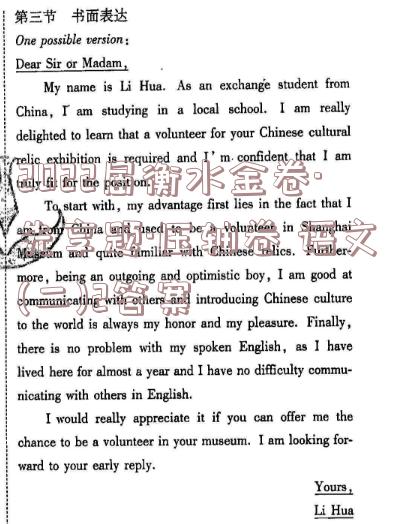 第三节 书面表达
One possible version:
Dear Sir or Madam,
My name is Li Hua. As an exchange student from
China, I am studying in a local school. I am really
delighted to learn that a volunteer for your Chinese cultural
relic exhibition is required and I'm confident that I am
truly fit for the position.
To start with, my advantage first lies in the fact that I
am from China and used to be a volunteer in Shanghai
Museum and quite familiar with Chinese relics. Further-
more, being an outgoing and optimistic boy, I am good at
communicating with others and introducing Chinese culture
to the world is always my honor and my pleasure. Finally,
there is no problem with my spoken English, as I have
lived here for almost a year and I have no difficulty commu-
nicating with others in English.
I would really appreciate it if you can offer me the
chance to be a volunteer in your museum. I am looking for-
ward to your early reply.
Yours,
Li Hua
2022届衡水金卷·
先享题·压轴卷 语文
(二)2答案